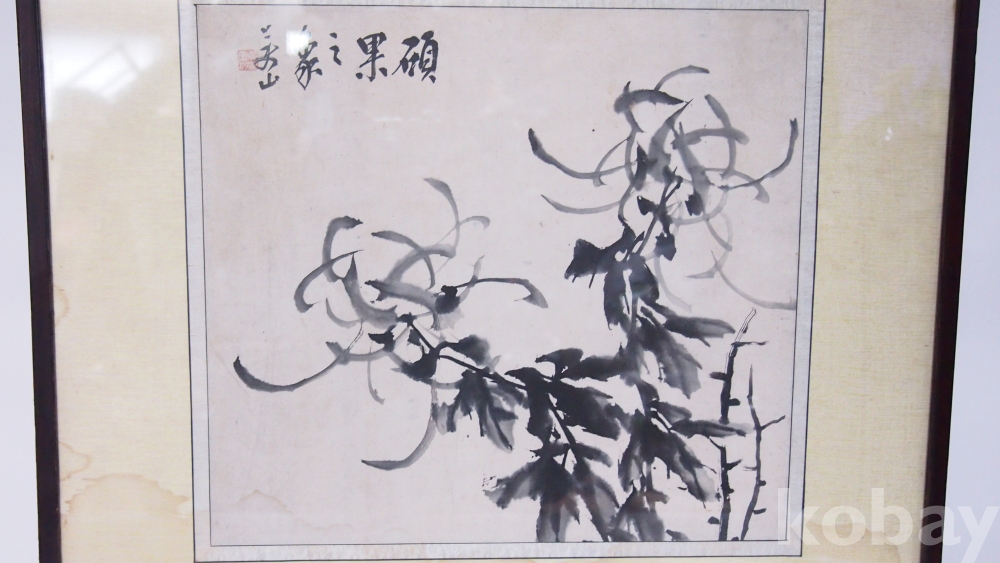 碩果之象
山
kobay